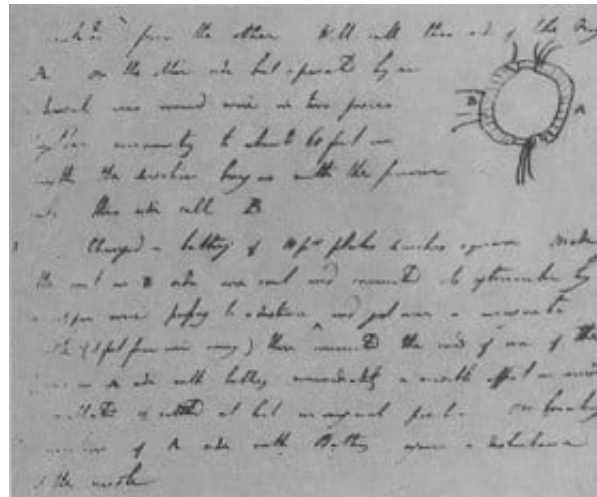 from the other Will call this side of the Ring
A on the other side but separated by an
interval was wound wire in two pieces
together amounting to about 60 feet in
length the direction being as with the former
this side call B
Charged a battery of 10 pr plates 4 inches square made
the coil on B side one coil and connected its extremities by
a copper wire passing to a distance and just over a magnetic
(3 feet from wire ring) then connected the ends of one of the
on A side with battery immediately a sensible effect on needle
settled at last in original position On breaking
connection of A side with Battery again a disturbance
of the needle
B
A